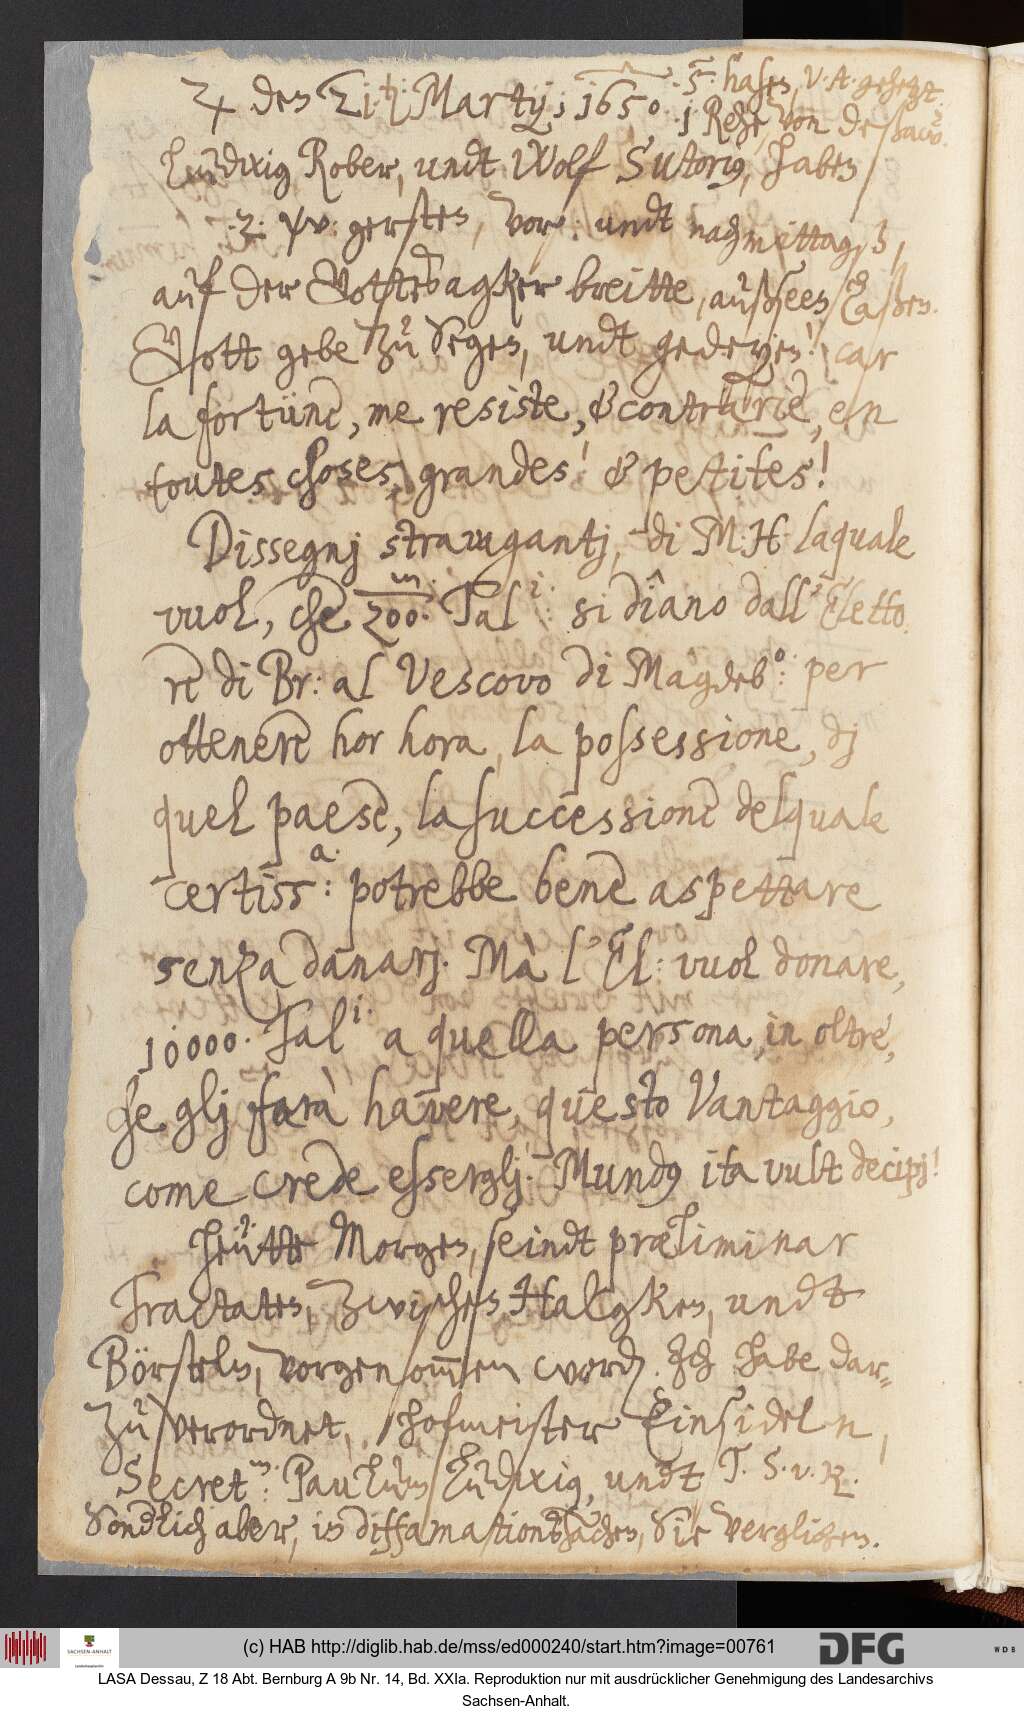 ♃ den 21.ten: Martij; 1650. .5. hasen, v. A. gehetzt.
.1 Rehe, von Deßaw.
Ludwig Rober, undt Wolf Sutorius, haben
.2. gersten, vor: undt nachmittags,
auf der Gottesagker breitte, außseen laßen.
Gott gebe zu Segen, undt gedeyen! car
la fortüne, me resiste, & contrarie, en
toutes choses, grandes! & petites!
Dissegnj stravagantj, di M: H: laquale
vuol, che 200m. Tal.i: si diano dall' Eletto¬
re di Br: al Vescovo di Magdeb.o: per
ottenere hor hora, la possessione, dj
quel paese, la successione delquale
certiss.a: potrebbe bene aspettare
senza danarj. Mà l'El: vuol donare,
10000. Tal.i: a quella persona, in oltre,
se glj farà havere, questo Vantaggio,
come crede esserglj. Mundus ita vult decipj!
Heütte Morgen, seindt præliminar
Tractaten, zwischen Halcken, undt
Börsteln, vorgenommen worden. Ich habe dar¬
zu verordnet, hofmeister Einsideln,
Secret.m: Paul Ludwig, undt T. S. v. R.
Sondlich aber, in diffamationsachen, Sie verglichen.
(c) HAB http://diglib.hab.de/mss/ed000240/start.htm?image=00761
SACHSEN-ANHALT
DFG
WDB
LASA Dessau, Z 18 Abt. Bernburg A 9b Nr. 14, Bd. XXIa. Reproduktion nur mit ausdrücklicher Genehmigung des Landesarchivs
Sachsen-Anhalt.